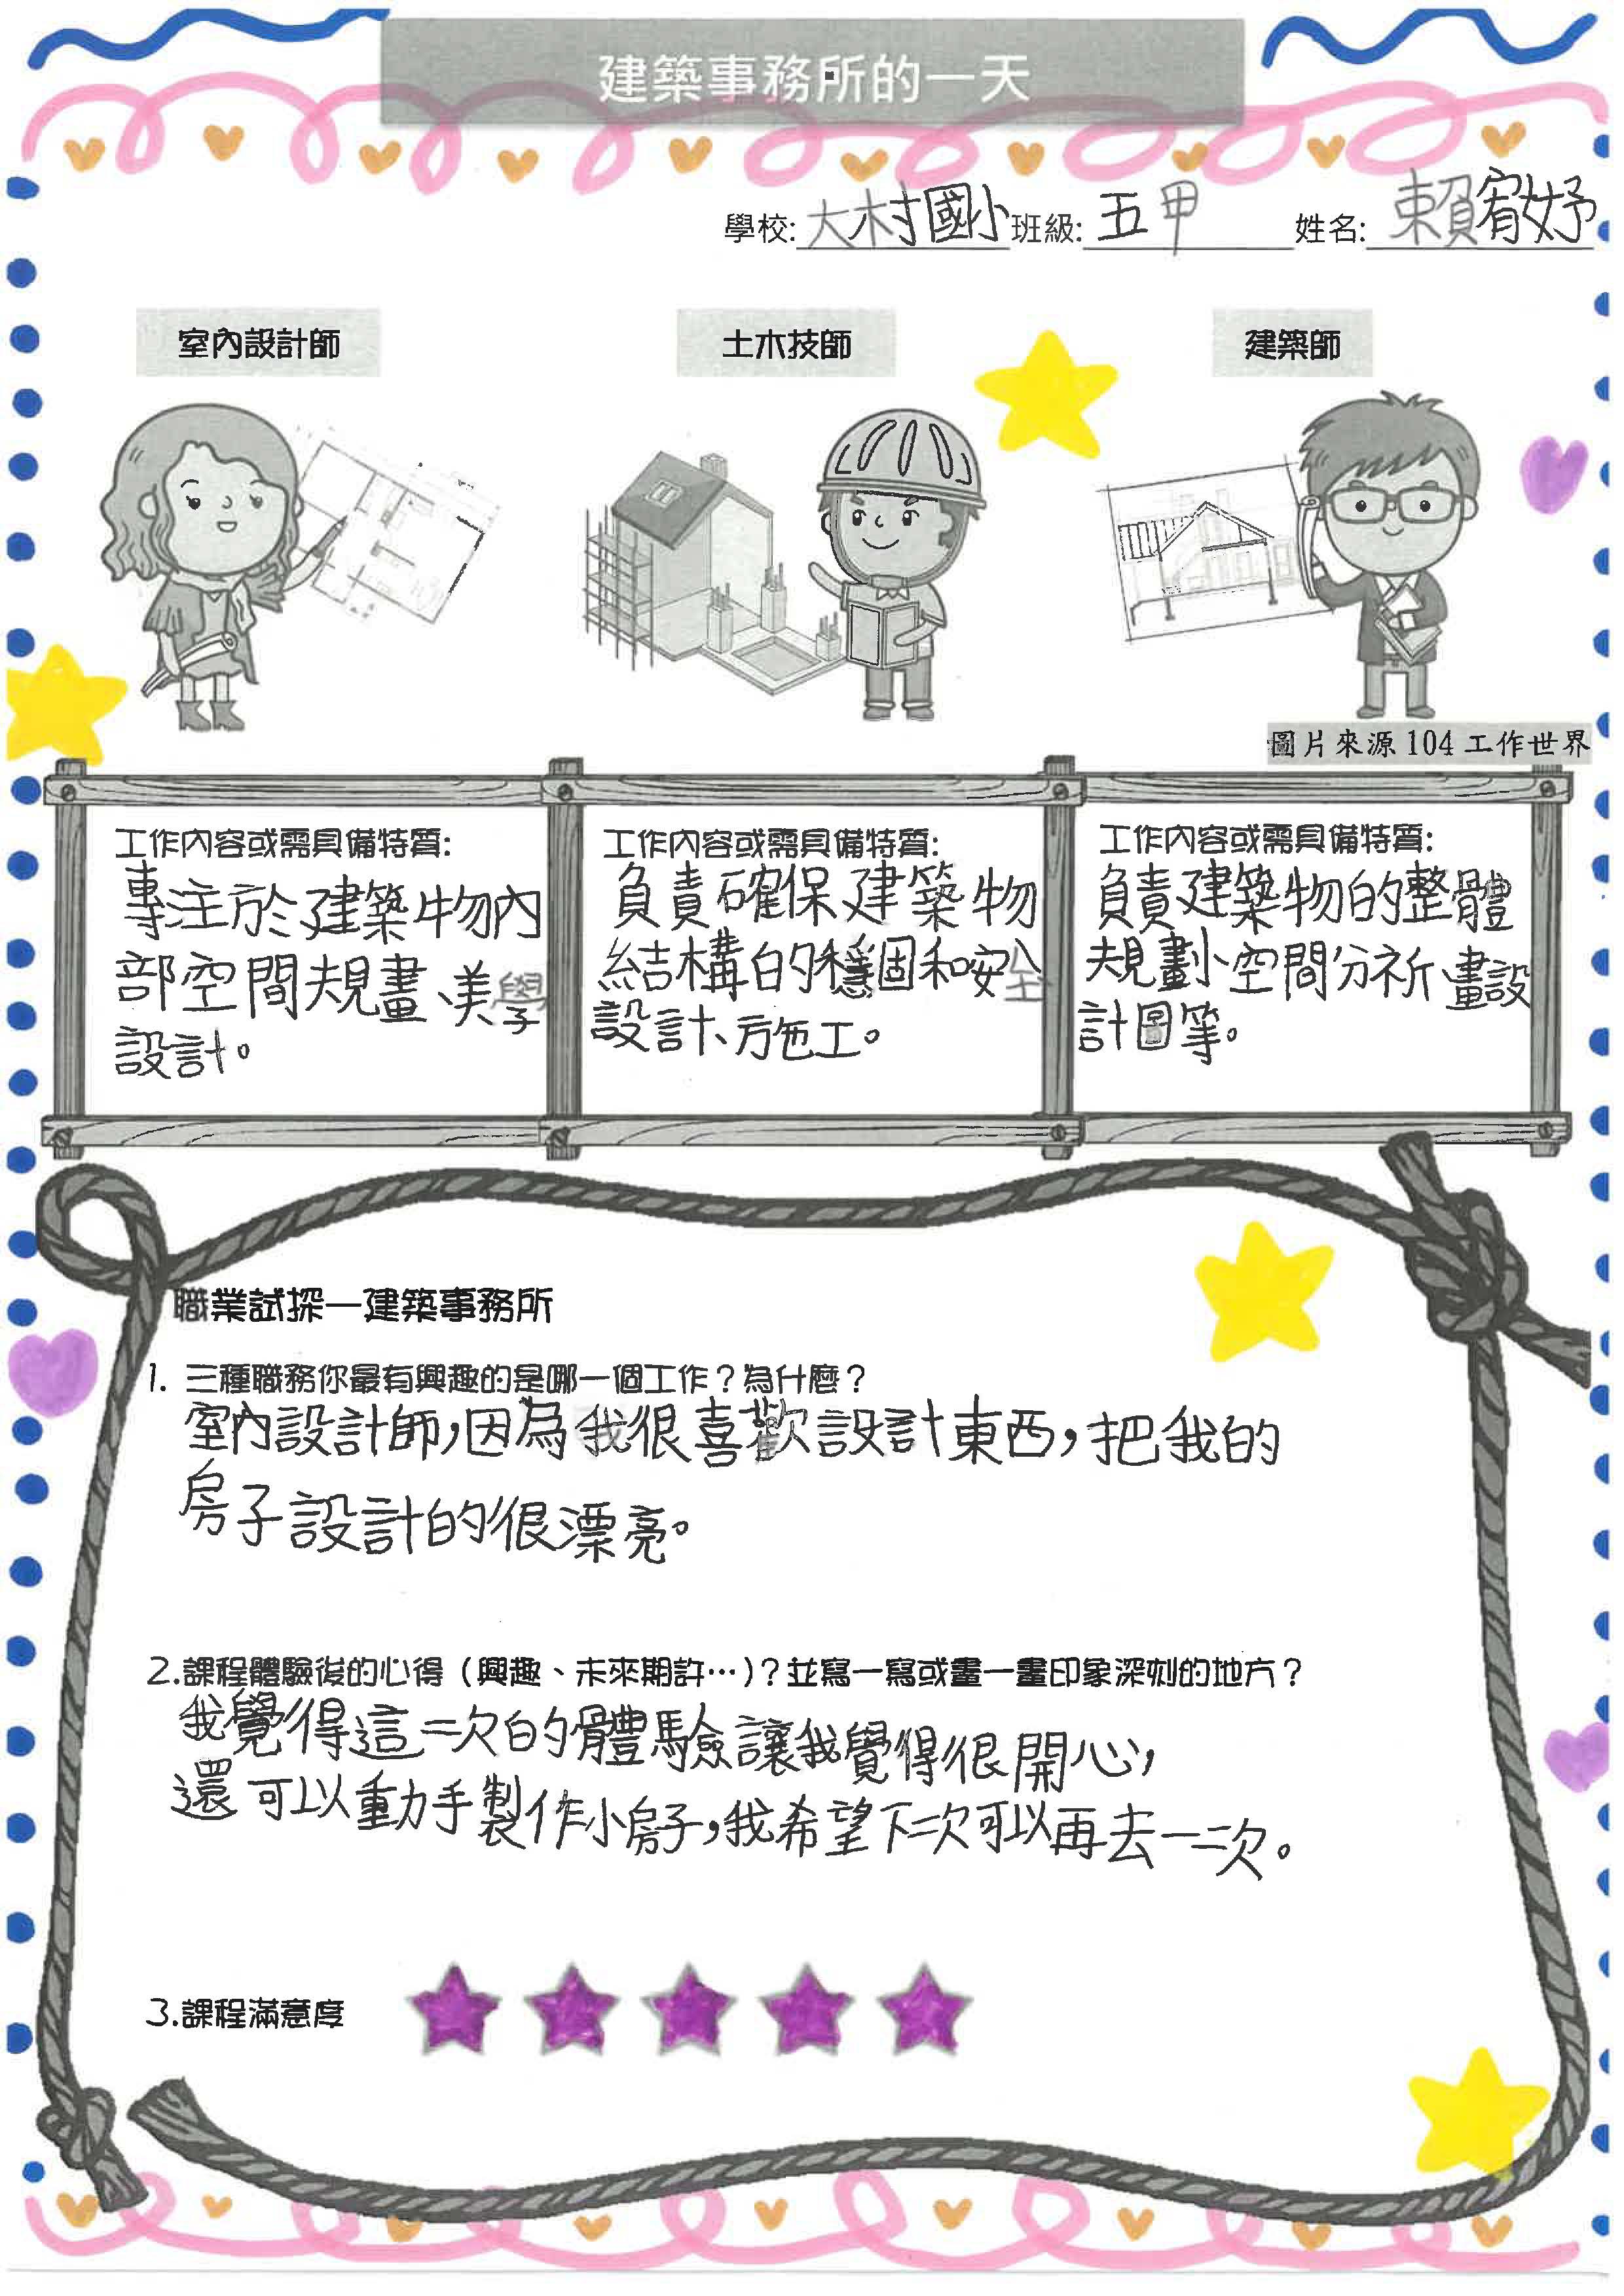 建築事務所的一天
學校:大村國小班級:五甲 姓名:賴宥妤
室內設計師 土木技師 建築師
圖片來源 104 工作世界
工作內容或需具備特質:
專注於建築物內
部空間規畫、美學
設計。
工作內容或需具備特質:
負責確保建築物
結構的穩固和安全
設計、施工。
工作內容或需具備特質:
負責建築物的整體
規劃、空間分析、畫設
計圖等。
職業試探—建築事務所
1. 三種職務你最有興趣的是哪一個工作？為什麼？
室內設計師,因為我很喜歡設計東西,把我的
房子設計的很漂亮。
2.課程體驗後的心得（興趣、未來期許…)？並寫一寫或畫一畫印象深刻的地方？
我覺得這一次的體驗讓我覺得很開心,
還可以動手製作小房子,我希望下次可以再去一次。
3.課程滿意度